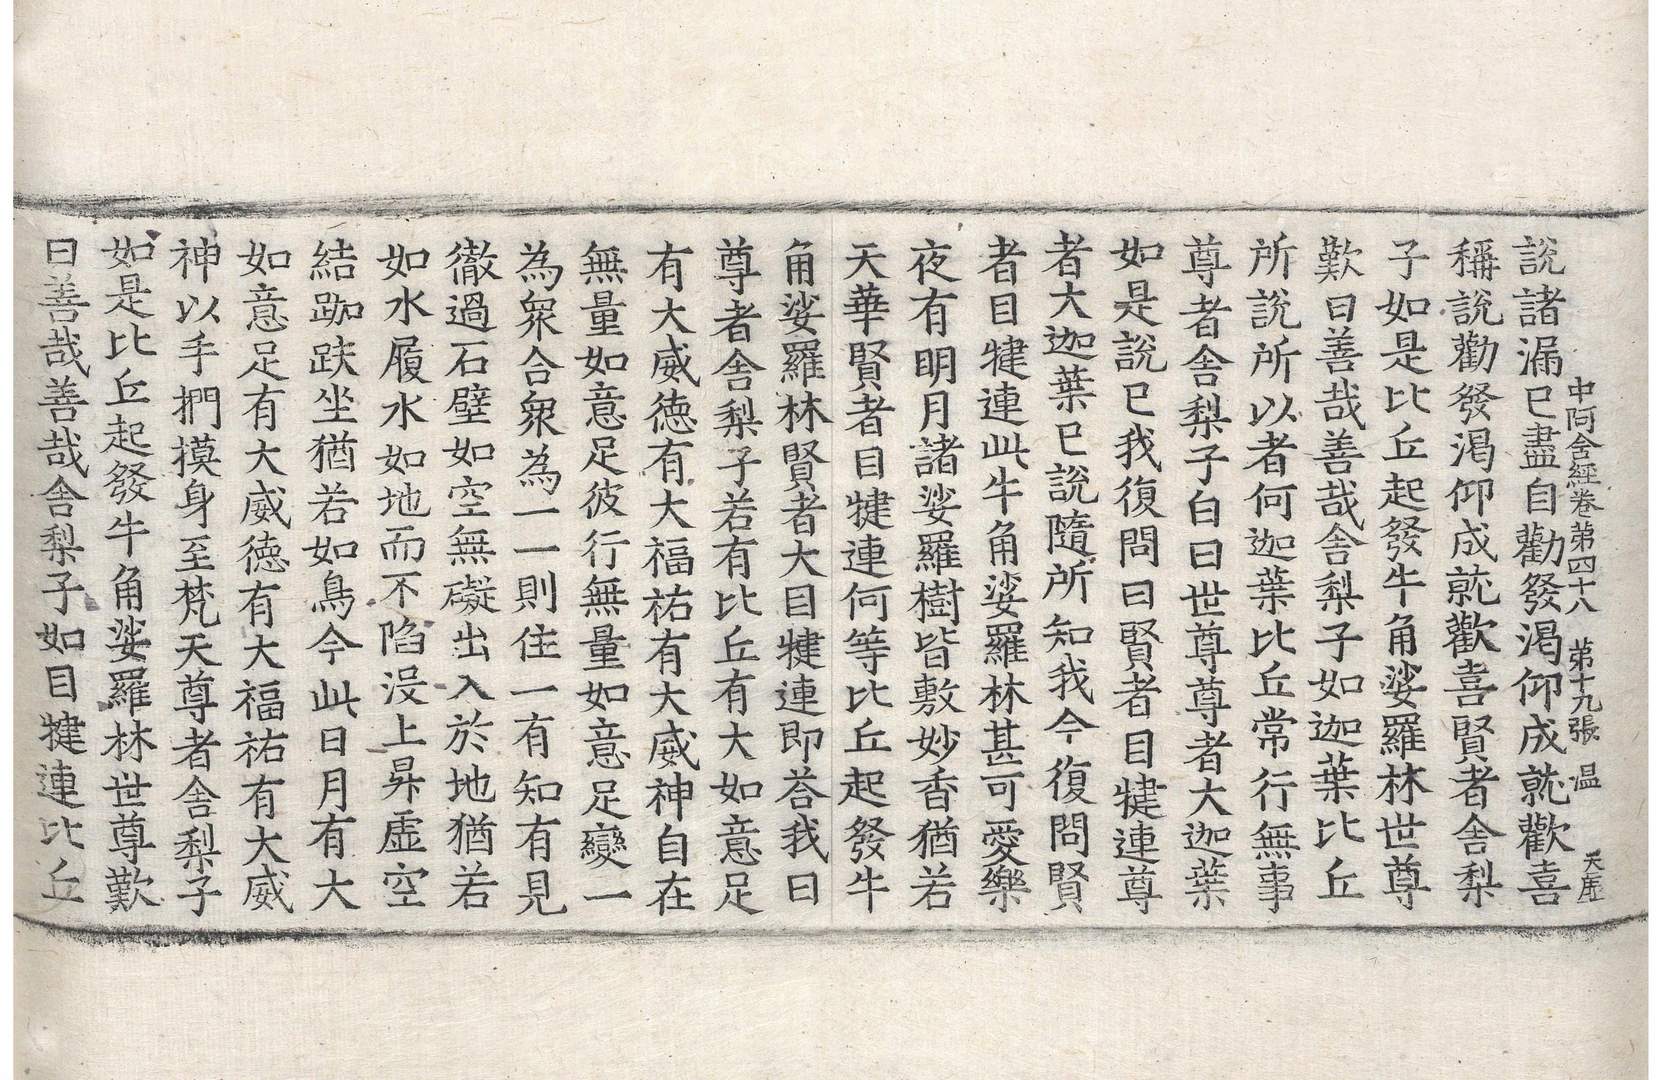 說諸漏已盡自勸發渴仰成就歡喜
中阿含經卷第四十八 第十九張 温 天虛
稱說勸發渴仰成就歡喜賢者舍梨
子如是比丘起發牛角娑羅林世尊
歎曰善哉善哉舍梨子如迦葉比丘
所說所以者何迦葉比丘常行無事
尊者舍梨子白曰世尊尊者大迦葉
如是說已我復問曰賢者目揵連尊
者大迦葉已說隨所知我今復問賢
者目揵連此牛角娑羅林甚可愛樂
夜有明月諸娑羅樹皆敷妙香猶若
天華賢者目揵連何等比丘起發牛
角娑羅林賢者大目揵連即荅我曰
尊者舍梨子若有比丘有大如意足
有大威德有大福祐有大威神自在
無量如意足彼行無量如意足變一
為衆合衆為一一則住一有知有見
徹過石壁如空無礙出入於地猶若
如水履水如地而不陷没上昇虛空
結跏趺坐猶若如鳥今此日月有大
如意足有大威德有大福祐有大威
神以手捫摸身至梵天尊者舍梨子
如是比丘起發牛角娑羅林世尊歎
曰善哉善哉舍梨子如目揵連比丘